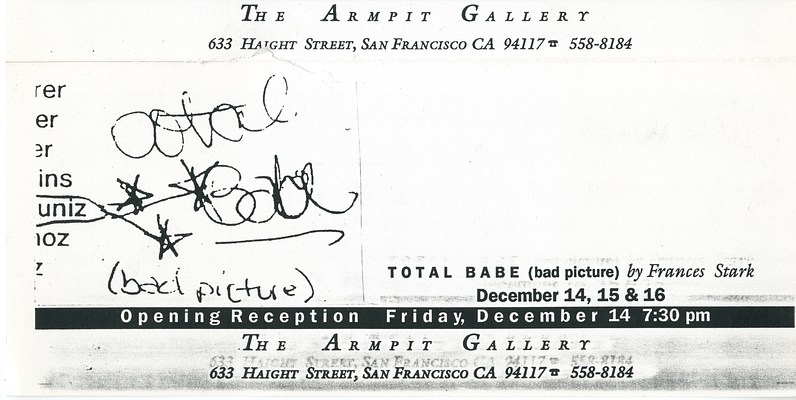 The Armpit Gallery
633 Haight Street, San Francisco CA 94117☎ 558-8184
rer
er
er
ins
uniz
noz
z
total
Babe
(bad picture)
TOTAL BABE (bad picture) by Frances Stark
December 14, 15 & 16
Opening Reception Friday, December 14 7:30 pm
The Armpit Gallery
633 Haight Street, San Francisco CA 94117☎ 558-8184
633 Haight Street, San Francisco CA 94117☎ 558-8184